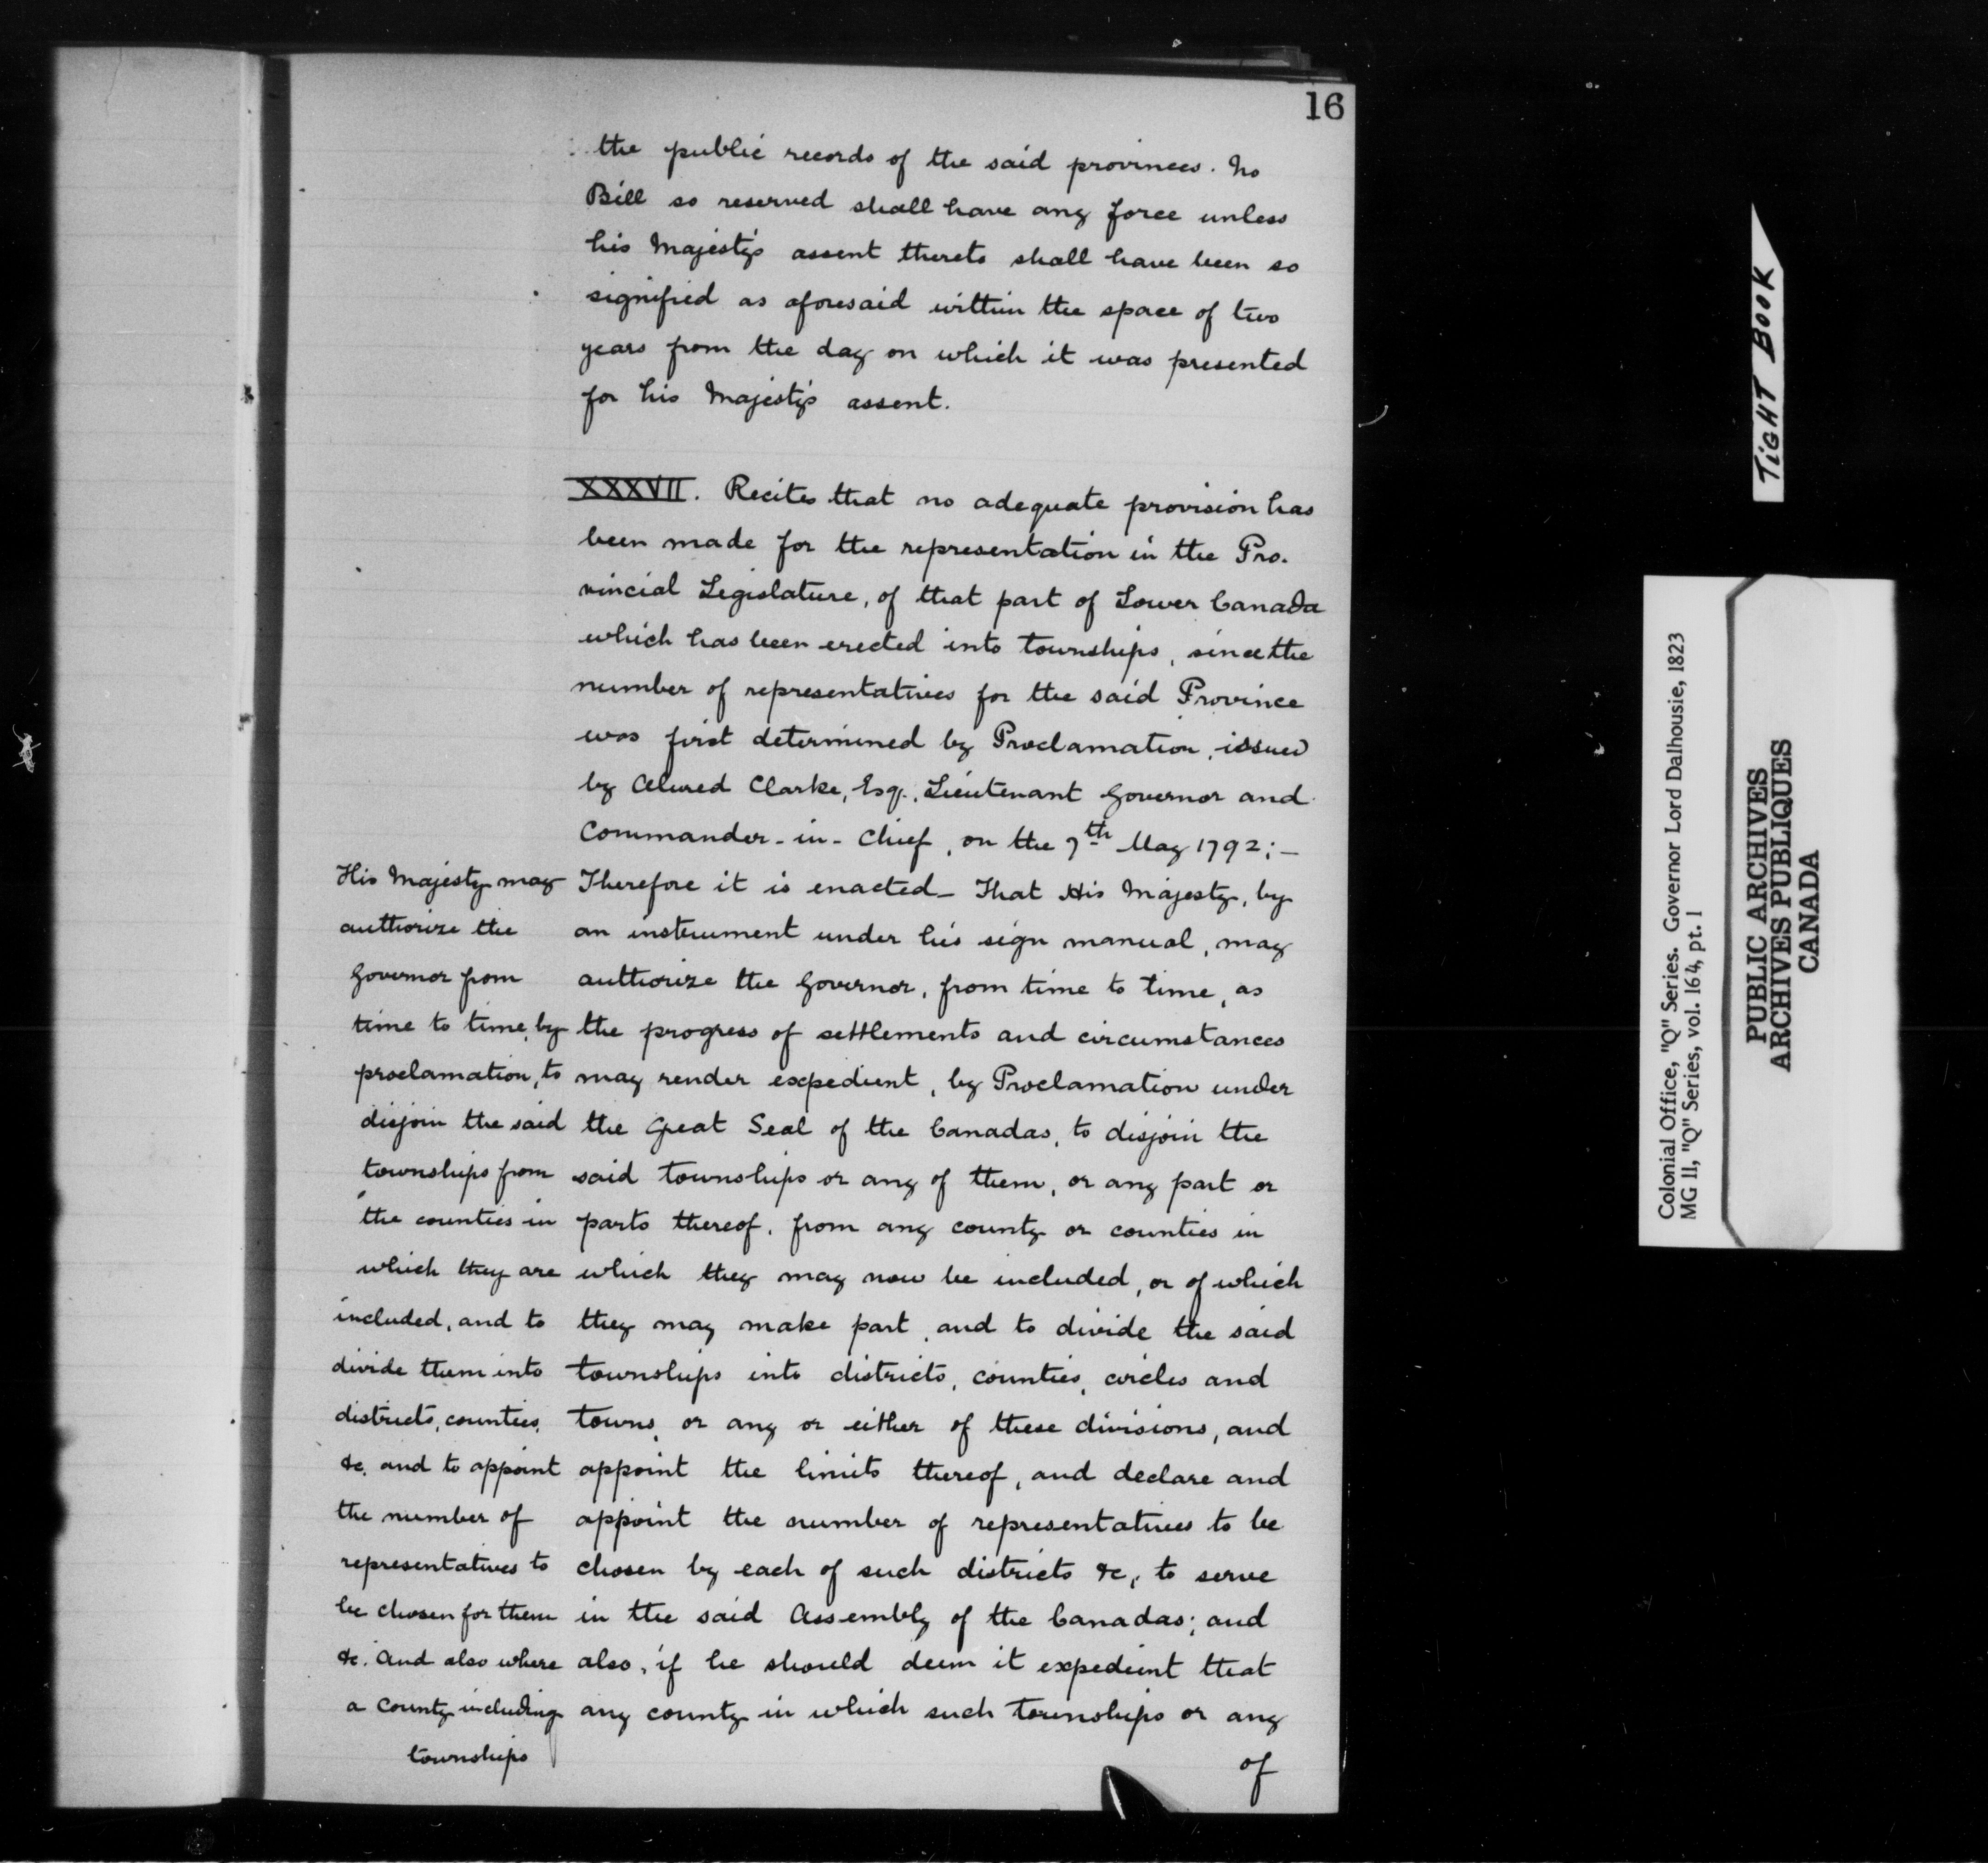 16
the public records of the said provinces. No
Bill so reserved shall have any force unless
his Majesty's assent thereto shall have been so
signified as aforesaid within the space of two
years from the day on which it was presented
for his Majesty's assent.
XXXVII. Recites that no adequate provision has
been made for the representation in the Pro-
vincial Legislature, of that part of Lower Canada
which has been erected into townships, since the
number of representatives for the said Province
was first determined by Proclamation, issued
by Alured Clarke, Esq., Lieutenant Governor and
Commander-in-Chief, on the 7th May 1792;—
Therefore it is enacted— That His Majesty, by
an instrument under his sign manual, may
authorize the Governor, from time to time, as
the progress of settlements and circumstances
may render expedient, by Proclamation under
the Great Seal of the Canadas, to disjoin the
said townships or any of them, or any part or
parts thereof, from any county or counties in
which they may now be included, or of which
they may make part, and to divide the said
townships into districts, counties, circles and
towns, or any or either of these divisions, and
appoint the limits thereof, and declare and
appoint the number of representatives to be
chosen by each of such districts &c, to serve
in the said Assembly of the Canadas; and
also, if he should deem it expedient that
any county in which such townships or any
of
His Majesty may
authorize the
Governor from
time to time, by
proclamation, to
disjoin the said
townships from
the counties in
which they are
included, and to
divide them into
districts, counties,
&c. and to appoint
the number of
representatives to
be chosen for them
&c. And also where
a county including
townships
TIGHT BOOK
Colonial Office, "Q" Series. Governor Lord Dalhousie, 1823
MG 11, "Q" Series, vol. 164, pt. 1
PUBLIC ARCHIVES
ARCHIVES PUBLIQUES
CANADA